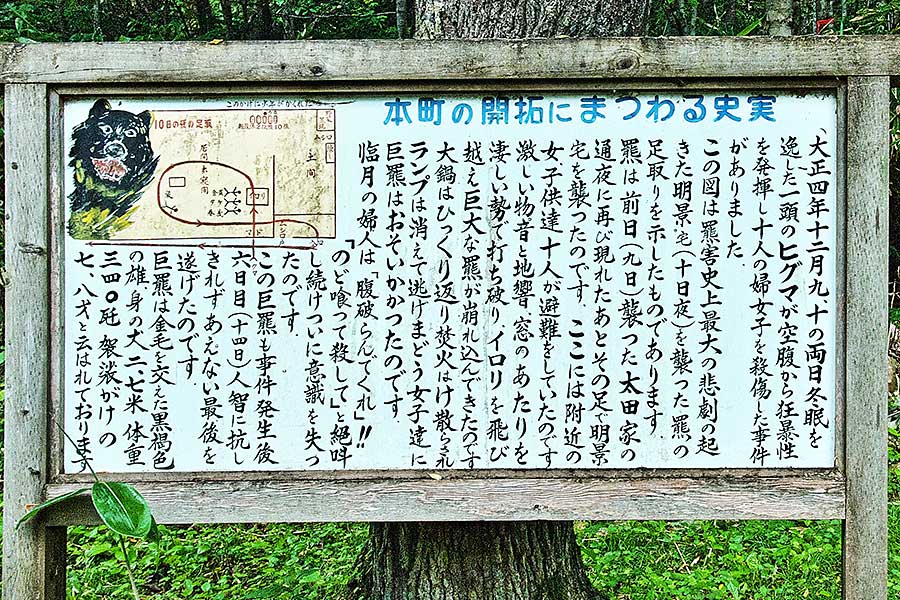 本町の開拓にまつわる史実
大正四年十二月九、十の両日冬眠を
逸した一頭のヒグマが空腹から狂暴性
を発揮し十人の婦女子を殺傷した事件
がありました
この図は羆害史上最大の悲劇の起
きた明景宅(十日夜)を襲った羆の
足取りを示したものであります
羆は前日(九日)襲った太田家の
通夜に再び現れたあとその足で明景
宅を襲ったのです.ここには附近の
女子供達十人が避難をしていたのです
激しい物音と地響、窓のあたりを
凄しい勢で打ち破りイロリを飛び
越え巨大な羆が崩れ込んできたのです
大鍋はひっくり返り焚火はけ散らされ
ランプは消えて逃げまどう女子達に
巨羆はおそいかかったのです.
臨月の婦人は「腹破らんでくれ」!!
「のど喰って殺して」と絶叫
し続けついに意識を失っ
たのです
この巨羆も事件発生後
六日目(十四日)人智に抗し
きれず.あえない最後を
遂げたのです
巨羆は金毛を交えた黒褐色
の雄.身の丈二、七米、体重
三四〇瓩 袈裟がけの
七、八才と云はれております
このかげに少年がかくれた
10日の羆の足取
土間
居間兼寝間
イロリ
マド